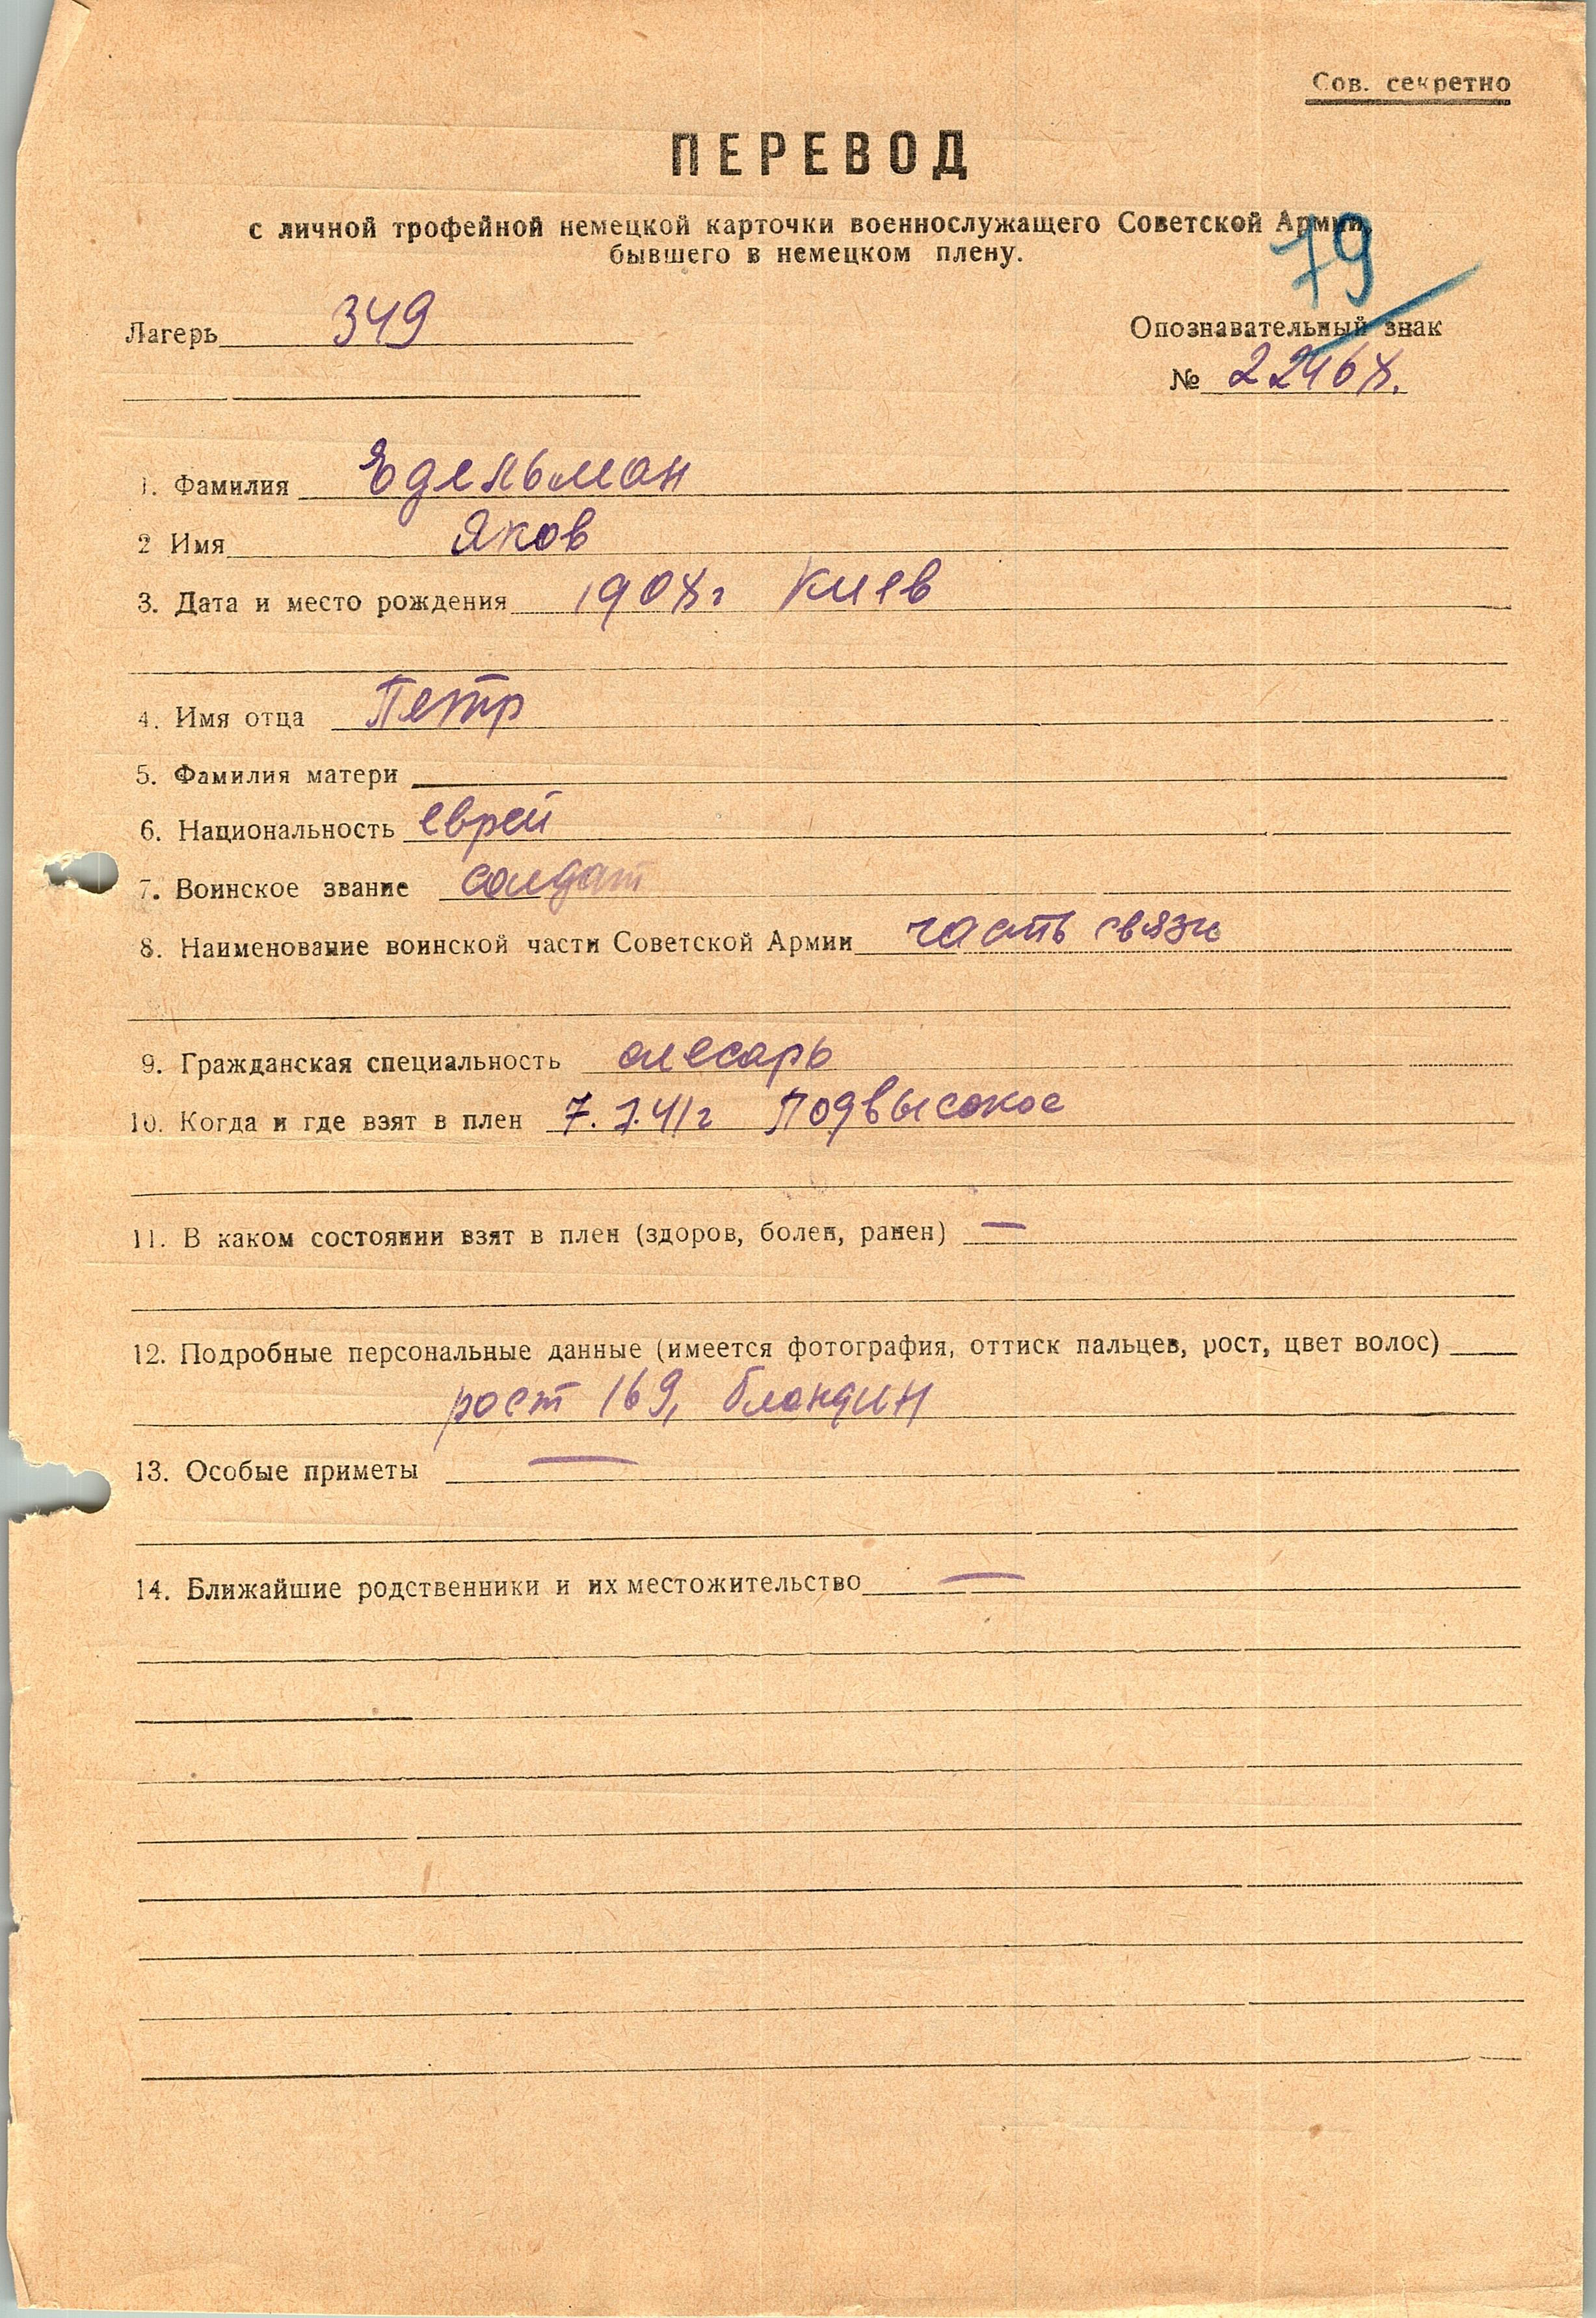 Сов. секретно
ПЕРЕВОД
с личной трофейной немецкой карточки военнослужащего Советской Армии,
бывшего в немецком плену.
79
Лагерь 349
Опознавательный знак
№ 22468.
1. Фамилия Едельман
2 Имя Яков
3. Дата и место рождения 1908г Киев
4. Имя отца Петр
5. Фамилия матери
6. Национальность еврей
7. Воинское звание солдат
8. Наименование воинской части Советской Армии часть связи
9. Гражданская специальность слесарь
10. Когда и где взят в плен 7. 7.41г Подвысокое
11. В каком состоянии взят в плен (здоров, болен, ранен) —
12. Подробные персональные данные (имеется фотография, оттиск пальцев, рост, цвет волос)
рост 169, блондин
13. Особые приметы —
14. Ближайшие родственники и их местожительство —